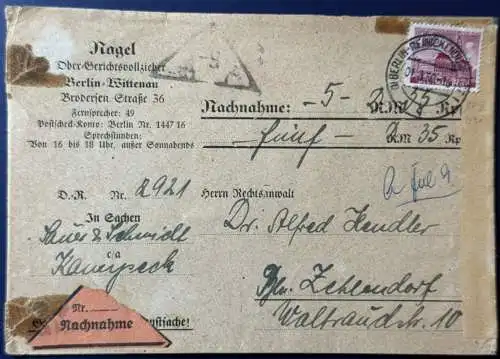 Nagel
Ober-Gerichtsvollzieher
Berlin-Wittenau
Brodersen-Straße 36
Fernsprecher: 49
Postscheck-Konto: Berlin Nr. 1447 16
Sprechstunden:
Von 16 bis 18 Uhr, außer Sonnabends
BERLIN-REINICKENDORF
Nachnahme: -5- RM Rp
fünf RM 35 Rp
D.-R. Nr. 2921
In Sachen
Sauer & Schmidt
c/a
Herrn Rechtsanwalt
Dr. Alfred Hendler
Bln. Zehlendorf
Waltraudstr. 10
Nr.
Nachnahme